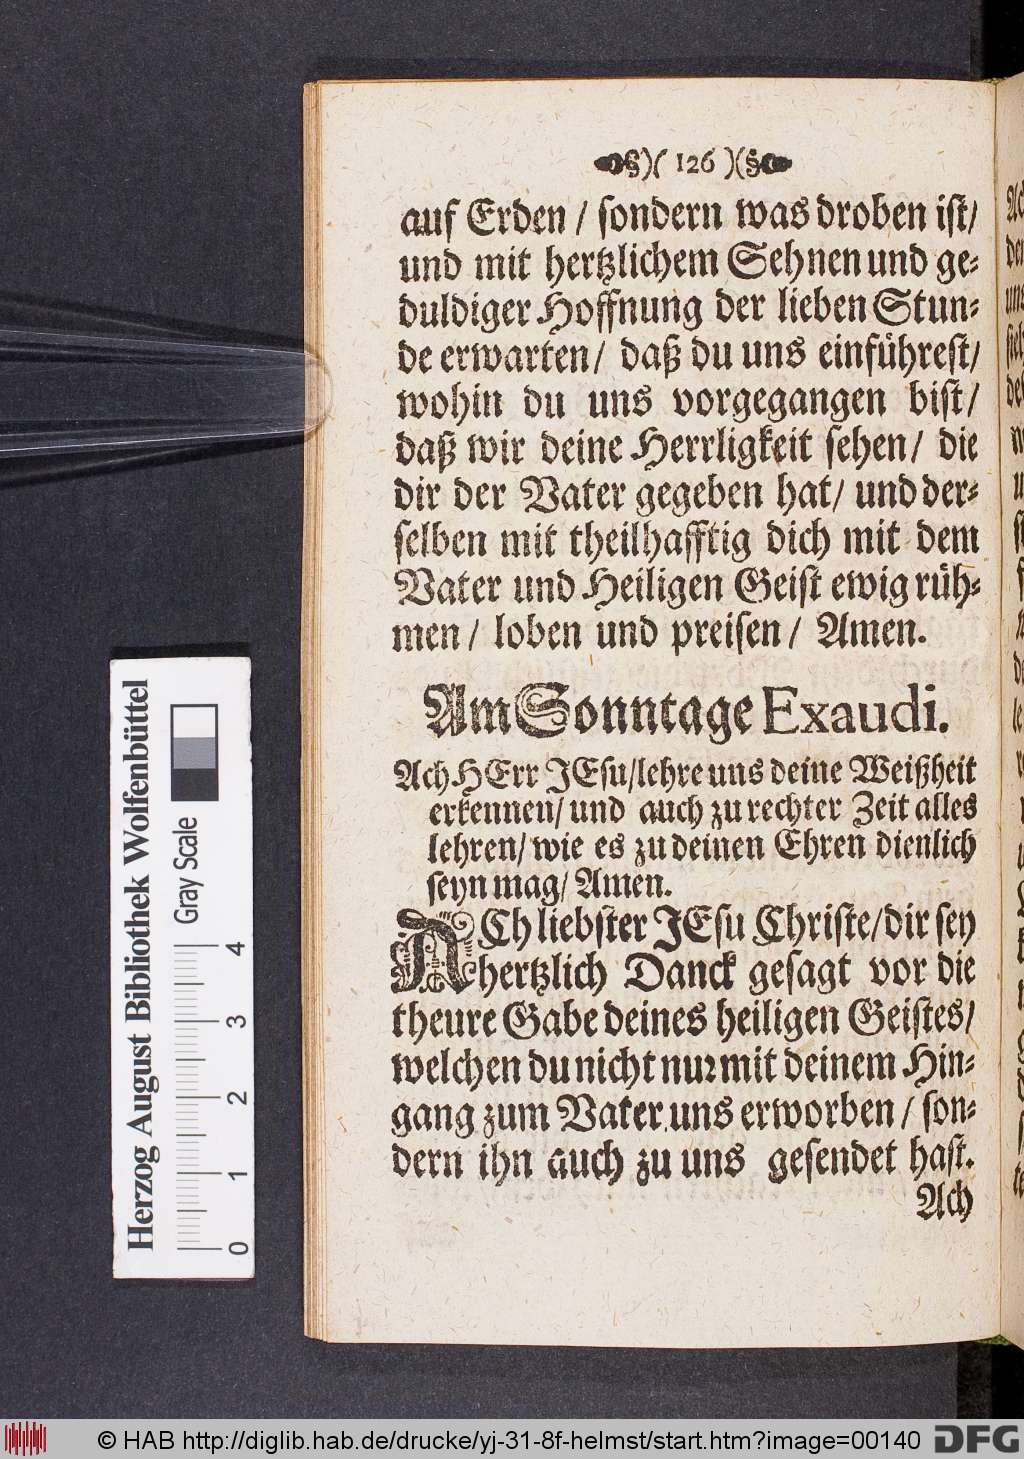 §)( 126 )(§
auf Erden / sondern was droben ist/
und mit hertzlichem Sehnen und ge-
duldiger Hoffnung der lieben Stun-
de erwarten/ daß du uns einführest/
wohin du uns vorgegangen bist/
daß wir deine Herrligkeit sehen/ die
dir der Vater gegeben hat/ und der-
selben mit theilhafftig dich mit dem
Vater und Heiligen Geist ewig rüh-
men/ loben und preisen/ Amen.
Am Sonntage Exaudi.
Ach HErr JEsu/lehre uns deine Weißheit
erkennen/ und auch zu rechter Zeit alles
lehren/ wie es zu deinen Ehren dienlich
seyn mag/ Amen.
ACh liebster JEsu Christe/dir sey
hertzlich Danck gesagt vor die
theure Gabe deines heiligen Geistes/
welchen du nicht nur mit deinem Hin-
gang zum Vater uns erworben/ son-
dern ihn auch zu uns gesendet hast.
Ach
Herzog August Bibliothek Wolfenbüttel
Gray Scale
0 1 2 3 4
© HAB http://diglib.hab.de/drucke/yj-31-8f-helmst/start.htm?image=00140
DFG